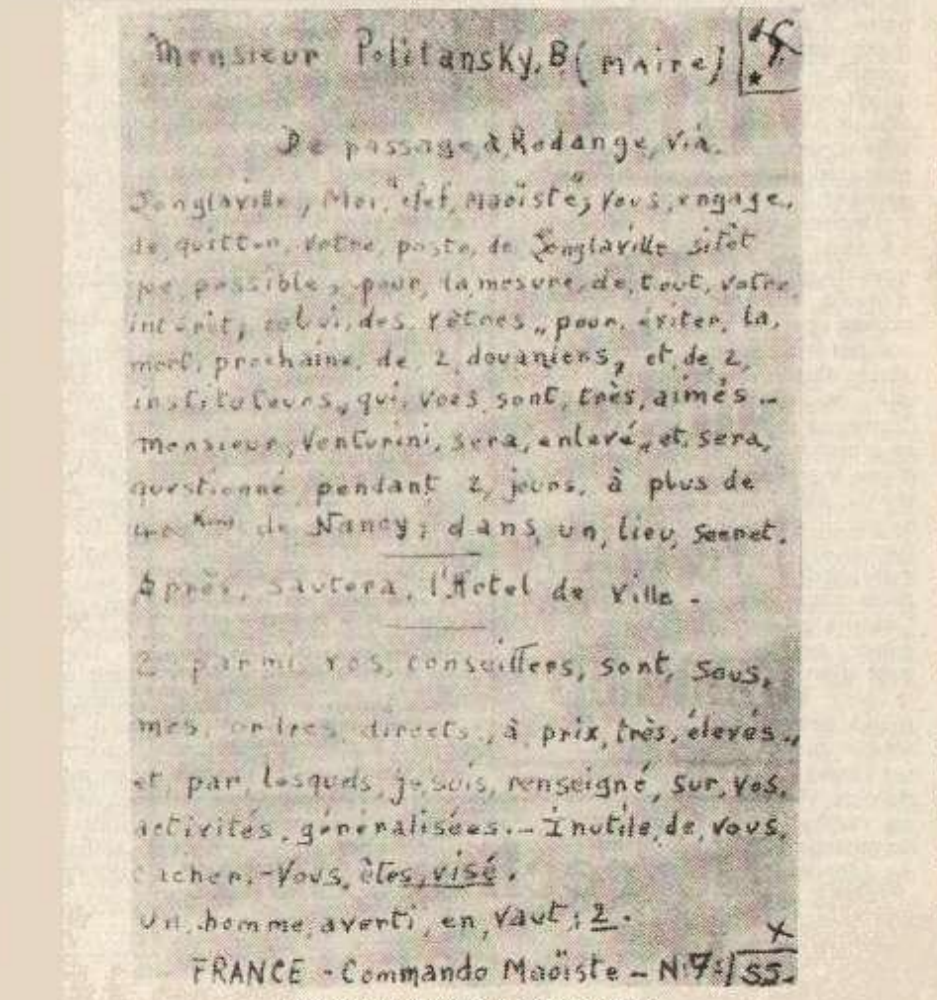 Monsieur Politansky, B. ( MAire )
De passage, à, Rodange, via.
Longlaville, Moi, "chef, maoïste", vous, engage,
de, quitter, votre, poste, de Longlaville sitôt
que, possible, pour, la, mesure, de, tout, votre,
intérêt, celui, des vôtres,, pour, éviter, la,
mort, prochaine, de 2, douaniers, et, de 2,
instituteurs,, qui, vous sont, très, aimés..
Monsieur, Venturini, sera, enlevé,, et, sera,
questionné pendant 2, jours, à plus de
Kms de Nancy; dans, un, lieu, secret.
Après, sautera, l'Hotel de Ville -
2, parmi vos, conseillers, sont, sous,
mes, ordres directs, à prix, très, élevés..,
et, par, lesquels, je, suis, renseigné, sur, vos,
activités, généralisées.- Inutile, de, vous,
cacher.- Vous, êtes, visé.
Un, homme, averti, en, vaut; 2.
FRANCE - Commando Maoïste - N:7:/55.